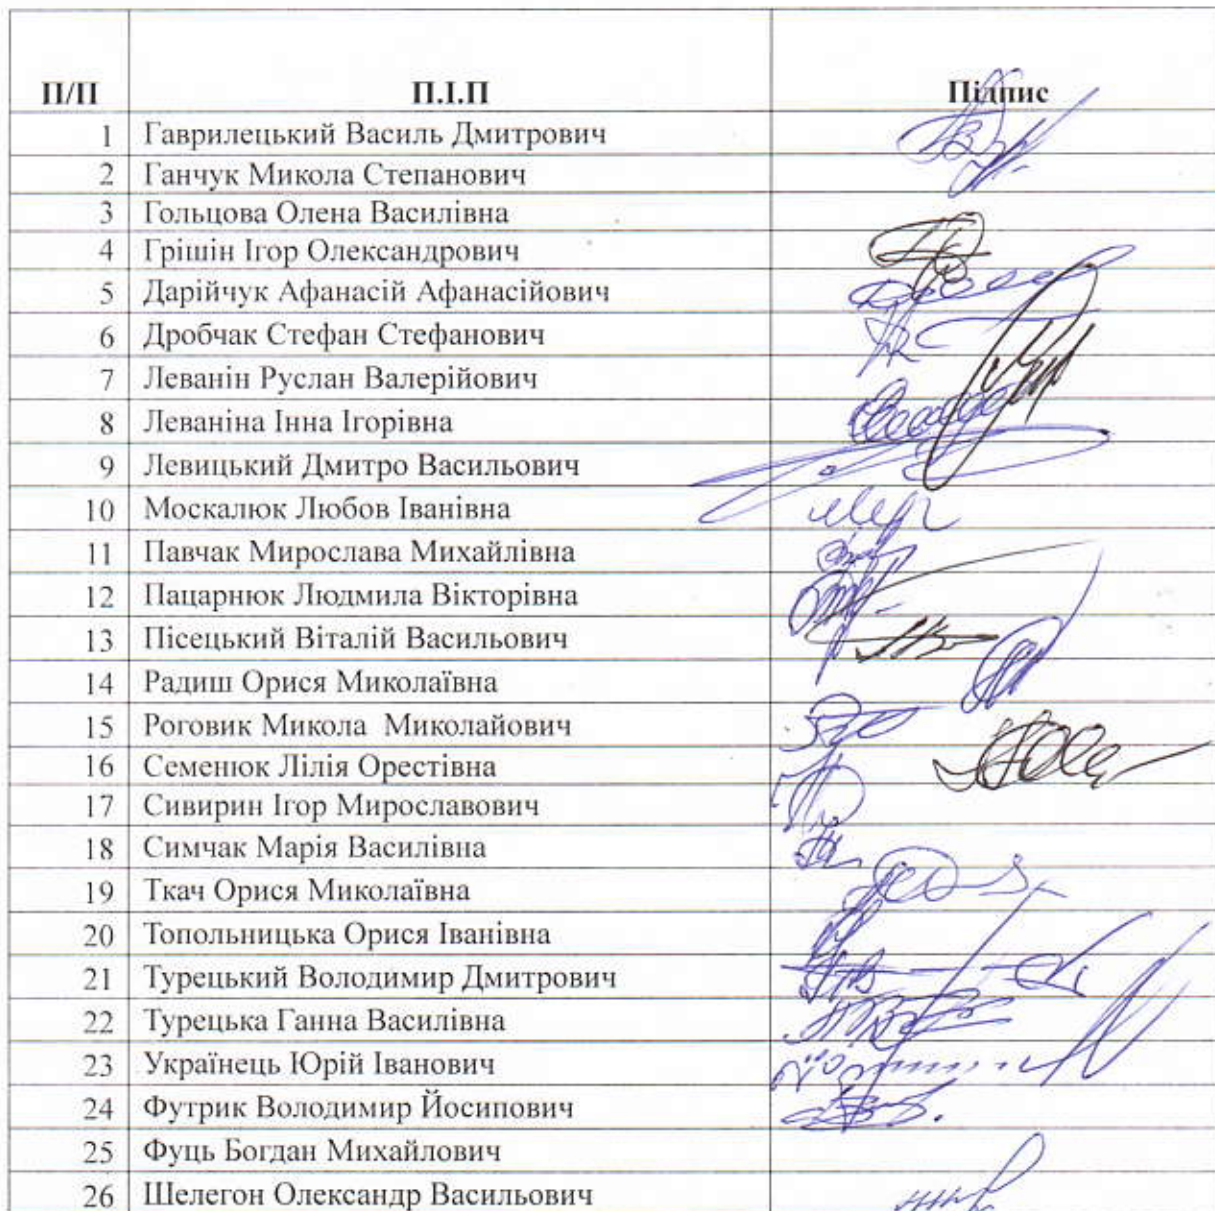 П/П П.І.П Підпис
1 Гаврилецький Василь Дмитрович
2 Ганчук Микола Степанович
3 Гольцова Олена Василівна
4 Грішін Ігор Олександрович
5 Дарійчук Афанасій Афанасійович
6 Дробчак Стефан Стефанович
7 Леванін Руслан Валерійович
8 Леваніна Інна Ігорівна
9 Левицький Дмитро Васильович
10 Москалюк Любов Іванівна
11 Павчак Мирослава Михайлівна
12 Пацарнюк Людмила Вікторівна
13 Пісецький Віталій Васильович
14 Радиш Орися Миколаївна
15 Роговик Микола Миколайович
16 Семенюк Лілія Орестівна
17 Сивирин Ігор Мирославович
18 Симчак Марія Василівна
19 Ткач Орися Миколаївна
20 Топольницька Орися Іванівна
21 Турецький Володимир Дмитрович
22 Турецька Ганна Василівна
23 Українець Юрій Іванович
24 Футрик Володимир Йосипович
25 Фуць Богдан Михайлович
26 Шелегон Олександр Васильович